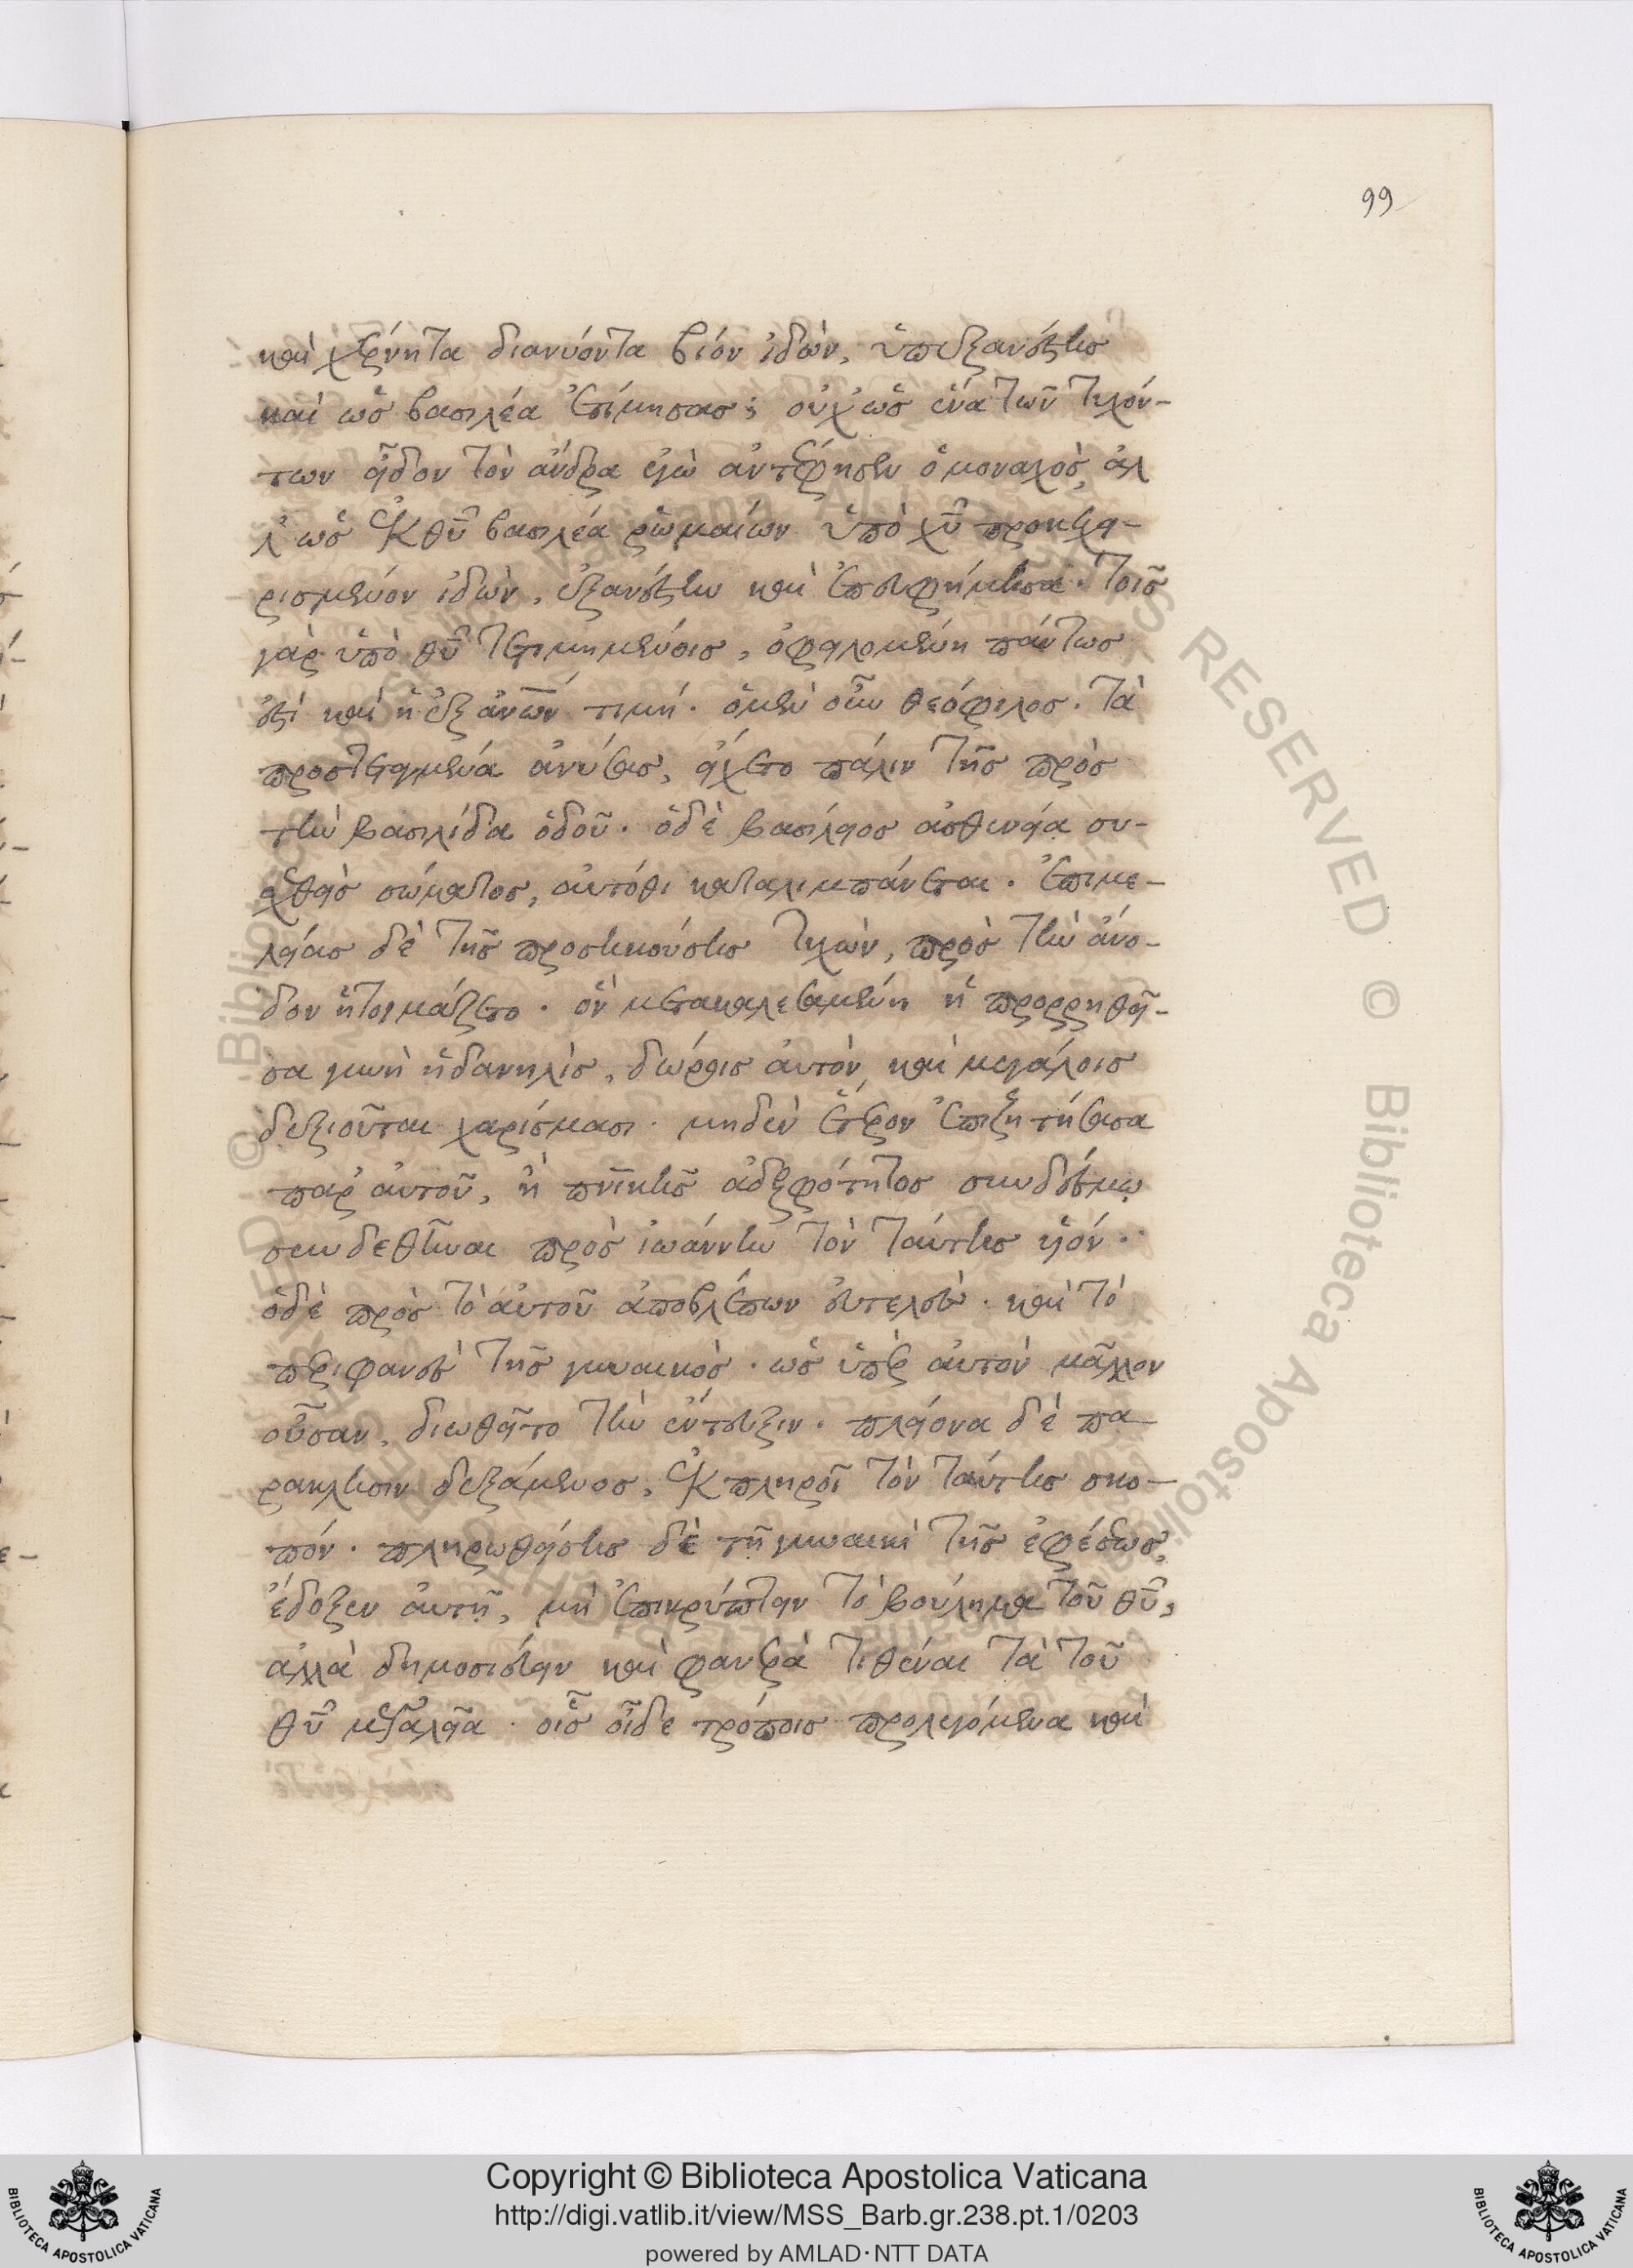 99
καὶ χερνῆτα διανύοντα βίον ἰδὼν, ὑπεξανέστης
καὶ ὡς βασιλέα ἐτίμησας; οὐχ ὡς ἕνα τῶν τελούν-
των εἶδον τὸν ἄνδρα ἐγὼ ἀντέφησεν ὁ μοναχὸς, ἀλ
λ' ὡς ἐκ θυ̅ βασιλέα ῥωμαίων ὑπὸ χυ̅ προκεχει-
ρισμένον ἰδὼν, ἐξανέστην καὶ ἐπευφήμησα. τοῖς
γὰρ ὑπὸ θυ̅ τετιμημένοις, ὀφειλομένη πάντως
ἐστὶ καὶ ἡ ἐξ ἀνω̅ν τιμή. ὁ μὲν οὖν θεόφιλος. τὰ
προστεταγμένα ἀνύσας, εἴχετο πάλιν τῆς πρὸς
τὴν βασιλίδα ὁδοῦ. ὁ δὲ βασίλειος ἀσθενείᾳ συ-
σχεθεὶς σώματος, αὐτόθι καταλιμπάνεται. ἐπιμε-
λείας δὲ τῆς προσηκούσης τυχὼν, πρὸς τὴν ἄνο-
δον ἡτοιμάζετο. ὃν μετακαλεσαμένη ἡ προρρηθεῖ-
σα γυνὴ ἡ δανηλὶς, δώροις αὐτὸν καὶ μεγάλοις
δεξιοῦται χαρίσμασι. μηδὲν ἕτερον ἐπιζητήσασα
παρ' αὐτοῦ, ἢ πν̅ικῆς ἀδελφότητος συνδέσμῳ
συνδεθῆναι πρὸς ἰωάννην τὸν ταύτης υἱόν.
ὁ δὲ πρὸς τὸ αὐτοῦ ἀποβλέπων εὐτελὲς. καὶ τὸ
περιφανὲς τῆς γυναικὸς. ὡς ὑπὲρ αὐτὸν μᾶλλον
οὖσαν, διωθεῖτο τὴν ἔντευξιν. πλείονα δὲ πα
ράκλησιν δεξάμενος, ἐκπληροῖ τὸν ταύτης σκο-
πόν. πληρωθείσης δὲ τῇ γυναικὶ τῆς ἐφέσεως,
ἔδοξεν αὐτῇ, μὴ ἐπικρύπτειν τὸ βούλημα τοῦ θυ̅,
ἀλλὰ δημοσιεύειν καὶ φανερὰ τιθέναι τὰ τοῦ
θυ̅ μεγαλεῖα. οἷς οἶδε τρόποις προλεγόμενα καὶ
Copyright © Biblioteca Apostolica Vaticana
http://digi.vatlib.it/view/MSS_Barb.gr.238.pt.1/0203
powered by AMLAD·NTT DATA
BIBLIOTECA APOSTOLICA VATICANA
BIBLIOTECA APOSTOLICA VATICANA